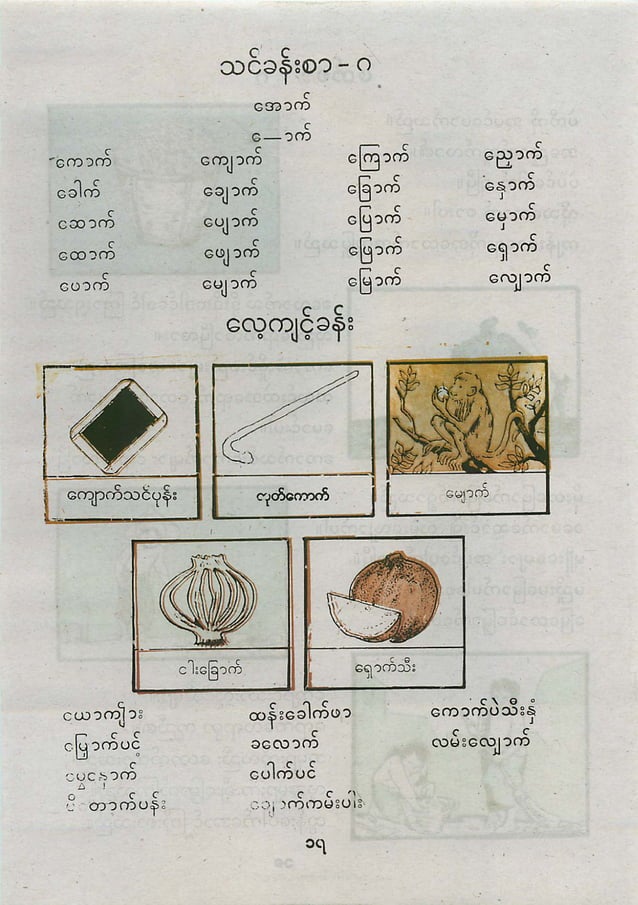 သင်ခန်းစာ - ဂ
အောက်
ေ—ာက်
ကောက် ကျောက် ကြောက် ညှောက်
ခေါက် ချောက် ခြောက် နှောက်
ဆောက် ပျောက် ပြောက် မှောက်
ထောက် ဖျောက် ဖြောက် ရှောက်
ပောက် မျောက် မြောက် လျှောက်
လေ့ကျင့်ခန်း
ကျောက်သင်ပုန်း တုတ်ကောက် မျောက်
ငါးခြောက် ရှောက်သီး
ယောကျ်ား ထန်းခေါက်ဖာ ကောက်ပဲသီးနှံ
မြှောက်ပင့် ခလောက် လမ်းလျှောက်
မွှေနှောက် ပေါက်ပင်
တောက်ပန်း ချောက်ကမ်းပါး
၁၇